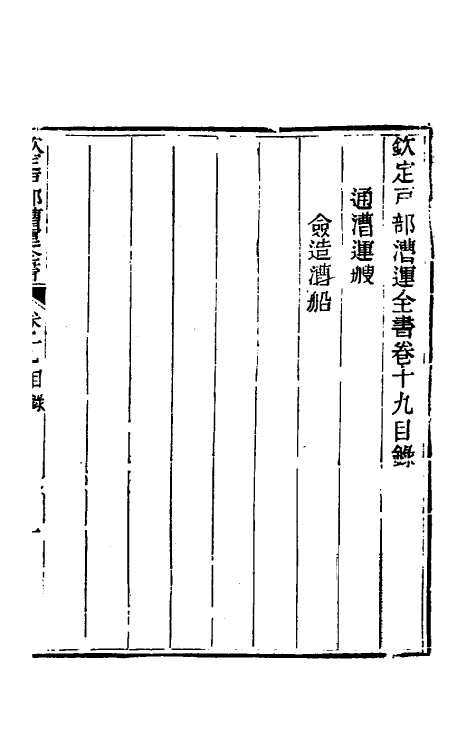 欽定戶部漕運全書卷十九目錄
通漕運艘
僉造漕船
欽定戶部漕運全書
卷十九目錄
一